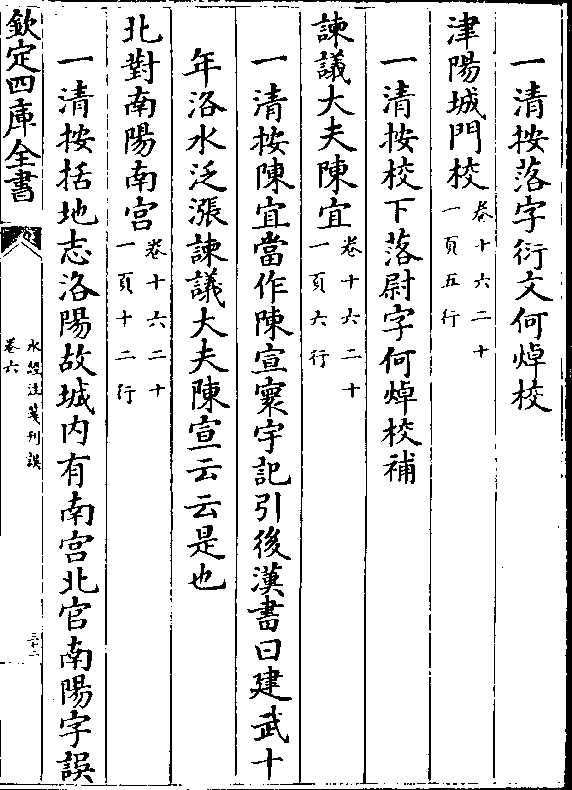 一清按落字衍文何焯校
津陽城門校卷十六二十一頁五行
一清按校下落尉字何焯校補
諫議大夫陳宜卷十六二十一頁六行
一清按陳宜當作陳宣寰宇記引後漢書曰建武十
年洛水泛漲諫議大夫陳宣云云是也
北對南陽南宫卷十六二十一頁十二行
一清按括地志洛陽故城内有南宫北官南陽字誤
欽定四庫全書
水經注箋刊誤
卷六
三十二